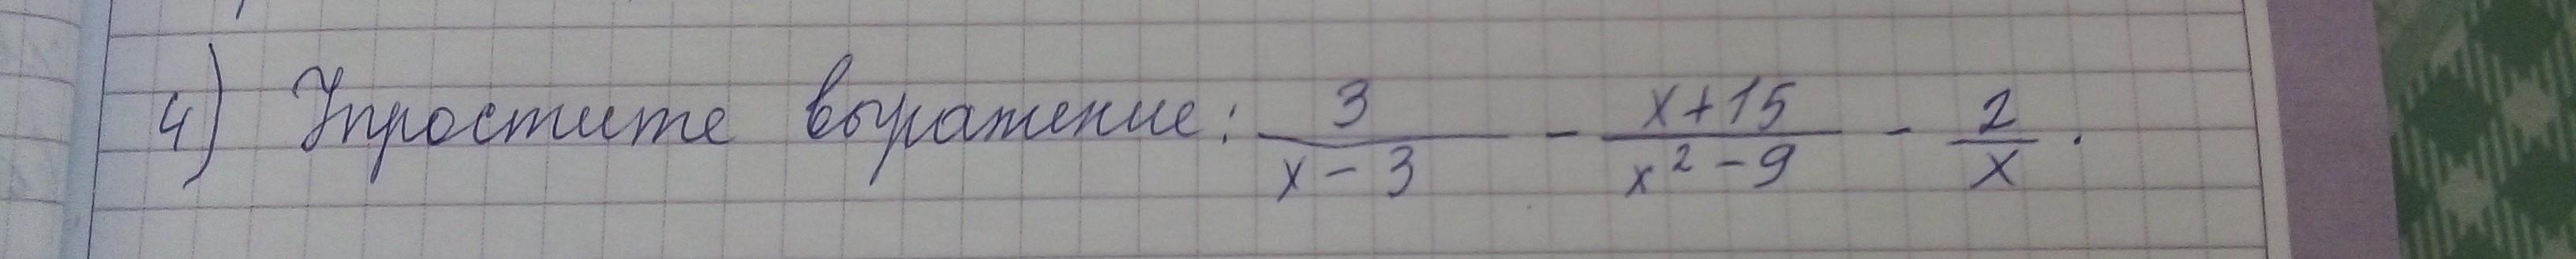 4) Упростите выражение: 3/(x-3) - (x+15)/(x²-9) - 2/x.